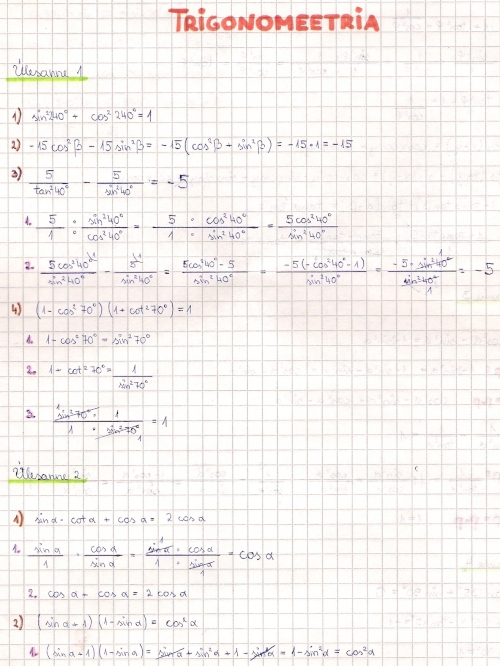 TRIGONOMEETRIA
Ülesanne 1
1) sin²240° + cos²240° = 1
2) -15cos²β - 15sin²β = -15(cos²β + sin²β) = -15·1 = -15
3) 5/tan²40° - 5/sin²40° = -5
1. 5/1 : sin²40°/cos²40° = 5 · cos²40°/1 · sin²40° = 5cos²40°/sin²40°
2. 5cos²40°/sin²40° - 5/sin²40° = 5cos²40° - 5/sin²40° = -5(-cos²40° - 1)/sin²40° = -5 · sin²40°/sin²40° = -5
4) (1 - cos²70°)(1 + cot²70°) = 1
1. 1 - cos²70° = sin²70°
2. 1 + cot²70° = 1/sin²70°
3. sin²70° · 1/1 · sin²70° = 1
Ülesanne 2
1) sin α · cot α + cos α = 2 cos α
1. sin α/1 · cos α/sin α = sin α · cos α/1 · sin α = cos α
2. cos α + cos α = 2 cos α
2) (sin α + 1)(1 - sin α) = cos²α
1. (sin α + 1)(1 - sin α) = sin α + sin²α + 1 - sin α = 1 - sin²α = cos²α